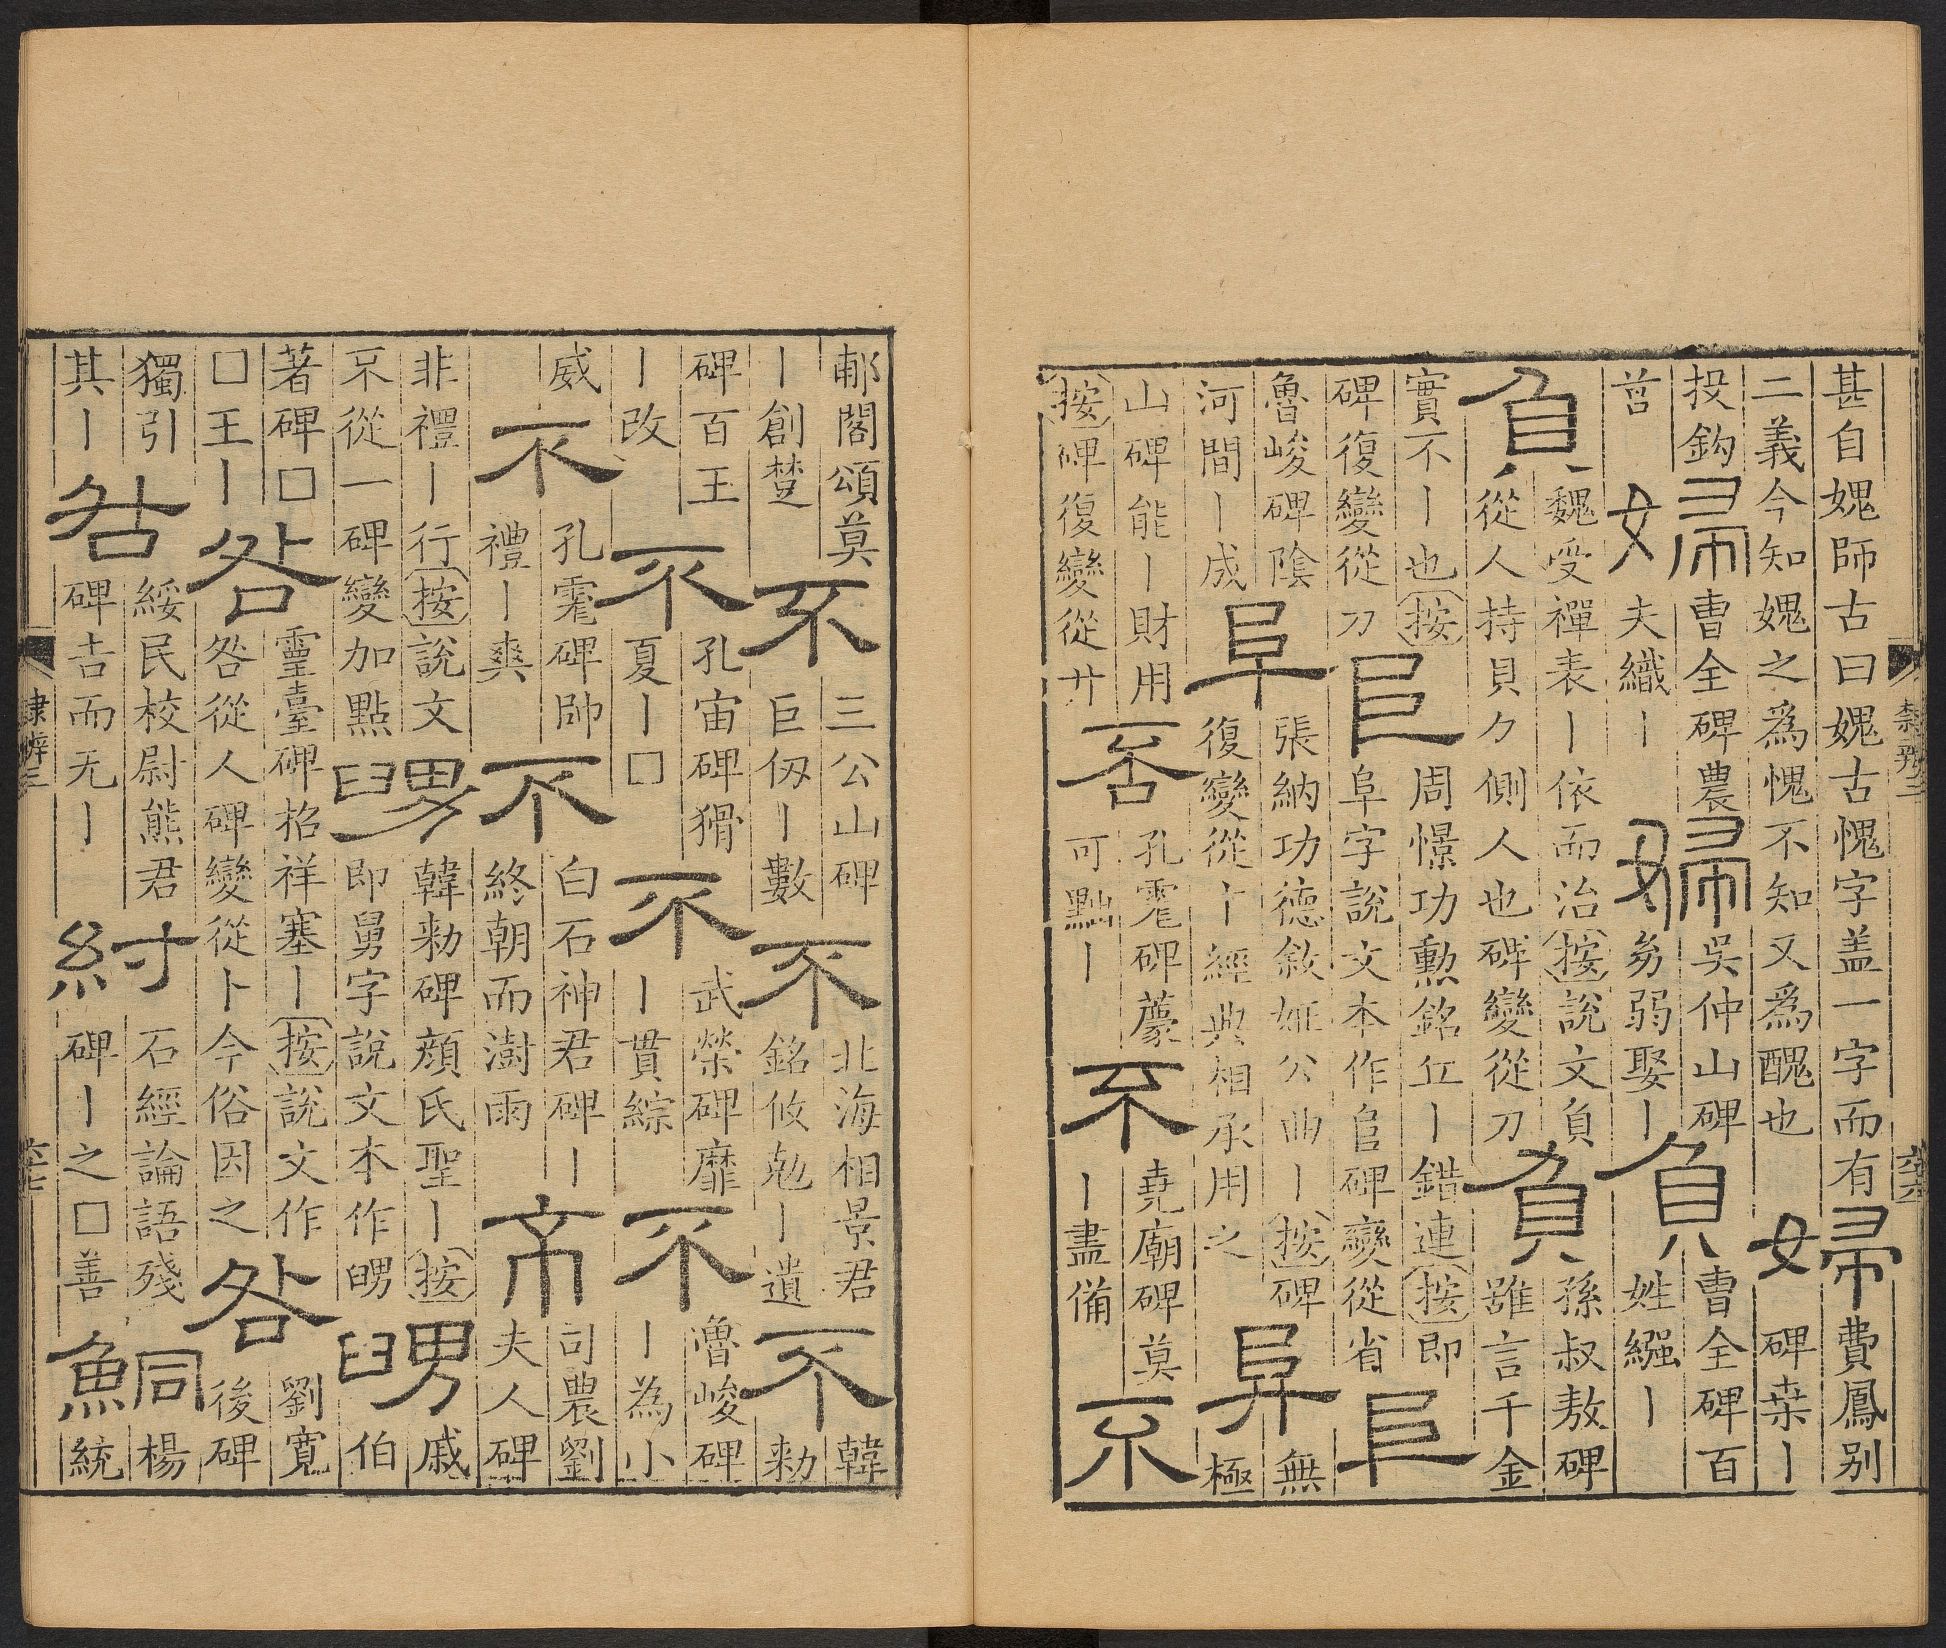 甚自媿師古曰媿古愧字盖一字而有
二義今知媿之為愧不知又為醜也
婦
費鳳别
碑桒丨
投鈎
莒
婦
曹全碑農
夫織丨
婦
吳仲山碑
㓜弱娶丨
負
曹全碑百
姓繦丨
負
魏受禪表丨依而治按說文負
從人持貝力側人也碑變從刀
負
孫叔敖碑
雖言千金
實不丨也按
碑復變從刀
𨸏
周憬功勲銘丘丨錯連按即
阜字說文本作𨸏碑變從省
𨸏
魯峻碑陰
河間丨成
阜
張納功德敘姬公曲丨按碑
復變從十經典相承用之
阜
無
極
山碑能丨財用
按碑復變從廾
否
孔彪碑
可黜丨
不
堯廟碑莫
丨盡備
不
隸辨三
六十六
郙閣頌莫
丨創楚
不
三公山碑
巨仭丨數
不
北海相景君
銘攸勉丨遺
不
韓
勑
碑百王
丨改
不
孔宙碑猾
夏丨□
不
武榮碑靡
丨貫綜
不
魯峻碑
丨為小
威
不
孔彪碑帥
禮丨爽
不
白石神君碑丨
終朝而澍雨
不
司農劉
夫人碑
非禮丨行按說文
不從一碑變加點
舅
韓勑碑顏氏聖丨按
即舅字說文本作舅
舅
戚
伯
著碑□
□王丨
咎
靈臺碑招祥塞丨按說文作
咎從人碑變從卜今俗因之
咎
劉寬
後碑
獨引
其丨
咎
綏民校尉熊君
碑吉而无丨
紂
石經論語殘
碑丨之□善
鮦
楊
統
隸辨三
六十七